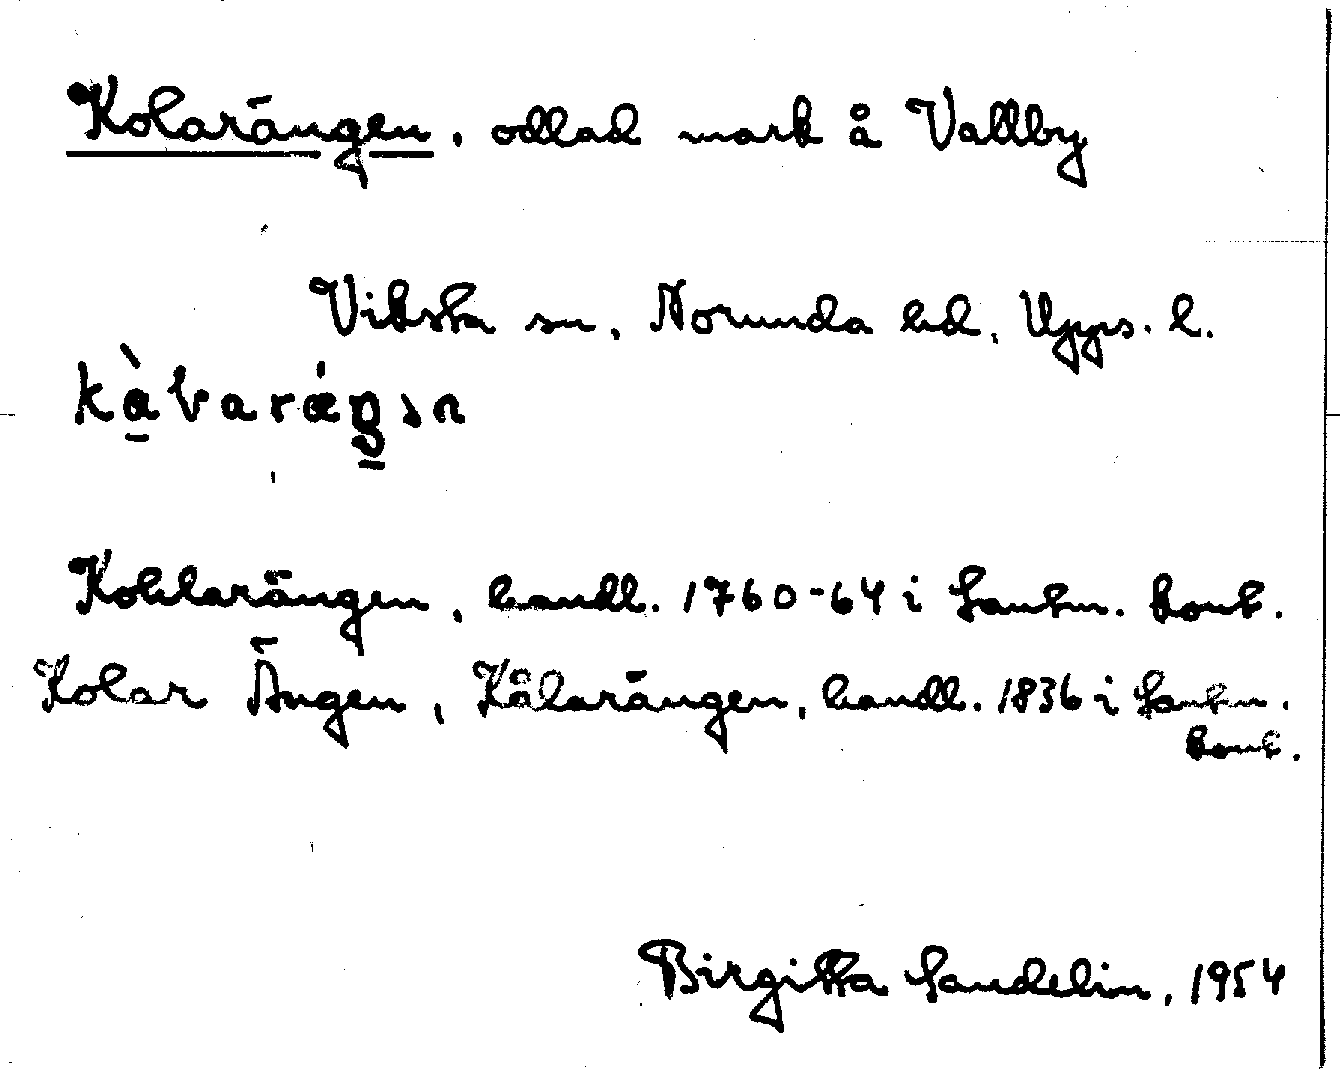 Kolarängen, odlad mark å Vallby
Viksta sn, Norunda hd, Upps. l.
Kohlarängen, handl. 1760-64 i Lantm. kont.
Kolar Ängen, Kålarängen, handl. 1836 i Lantm.
kont.
Birgitta Sandelin, 1954